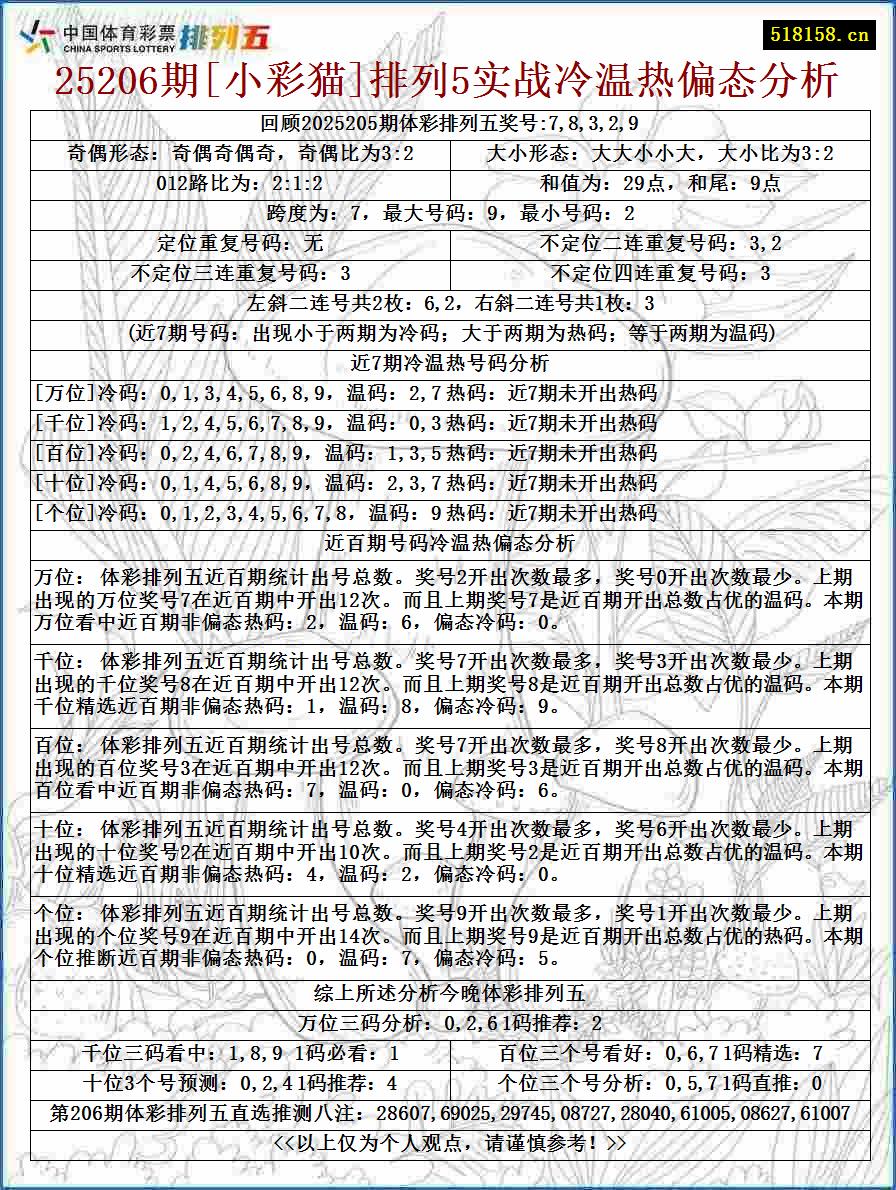 中国体育彩票
CHINA SPORTS LOTTERY
排列五
518158.cn
25206期[小彩猫]排列5实战冷温热偏态分析
回顾2025205期体彩排列五奖号:7,8,3,2,9
奇偶形态：奇偶奇偶奇，奇偶比为3:2
大小形态：大大小小大，大小比为3:2
012路比为：2:1:2
和值为：29点，和尾：9点
跨度为：7，最大号码：9，最小号码：2
定位重复号码：无
不定位二连重复号码：3,2
不定位三连重复号码：3
不定位四连重复号码：3
左斜二连号共2枚：6,2，右斜二连号共1枚：3
(近7期号码：出现小于两期为冷码；大于两期为热码；等于两期为温码)
近7期冷温热号码分析
[万位]冷码：0,1,3,4,5,6,8,9，温码：2,7 热码：近7期未开出热码
[千位]冷码：1,2,4,5,6,7,8,9，温码：0,3 热码：近7期未开出热码
[百位]冷码：0,2,4,6,7,8,9，温码：1,3,5 热码：近7期未开出热码
[十位]冷码：0,1,4,5,6,8,9，温码：2,3,7 热码：近7期未开出热码
[个位]冷码：0,1,2,3,4,5,6,7,8，温码：9 热码：近7期未开出热码
近百期号码冷温热偏态分析
万位： 体彩排列五近百期统计出号总数。奖号2开出次数最多，奖号0开出次数最少。上期
出现的万位奖号7在近百期中开出12次。而且上期奖号7是近百期开出总数占优的温码。本期
万位看中近百期非偏态热码：2，温码：6，偏态冷码：0。
千位： 体彩排列五近百期统计出号总数。奖号7开出次数最多，奖号3开出次数最少。上期
出现的千位奖号8在近百期中开出12次。而且上期奖号8是近百期开出总数占优的温码。本期
千位精选近百期非偏态热码：1，温码：8，偏态冷码：9。
百位： 体彩排列五近百期统计出号总数。奖号7开出次数最多，奖号8开出次数最少。上期
出现的百位奖号3在近百期中开出12次。而且上期奖号3是近百期开出总数占优的温码。本期
百位看中近百期非偏态热码：7，温码：0，偏态冷码：6。
十位： 体彩排列五近百期统计出号总数。奖号4开出次数最多，奖号6开出次数最少。上期
出现的十位奖号2在近百期中开出10次。而且上期奖号2是近百期开出总数占优的温码。本期
十位精选近百期非偏态热码：4，温码：2，偏态冷码：0。
个位： 体彩排列五近百期统计出号总数。奖号9开出次数最多，奖号1开出次数最少。上期
出现的个位奖号9在近百期中开出14次。而且上期奖号9是近百期开出总数占优的热码。本期
个位推断近百期非偏态热码：0，温码：7，偏态冷码：5。
综上所述分析今晚体彩排列五
万位三码分析：0,2,6 1码推荐：2
千位三码看中：1,8,9 1码必看：1
百位三个号看好：0,6,7 1码精选：7
十位3个号预测：0,2,4 1码推荐：4
个位三个号分析：0,5,7 1码直推：0
第206期体彩排列五直选推测八注：28607,69025,29745,08727,28040,61005,08627,61007
<<以上仅为个人观点，请谨慎参考！>>